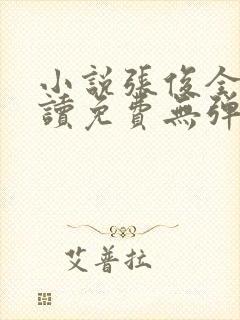 小說張俊全
讀免費無彈
艾普拉